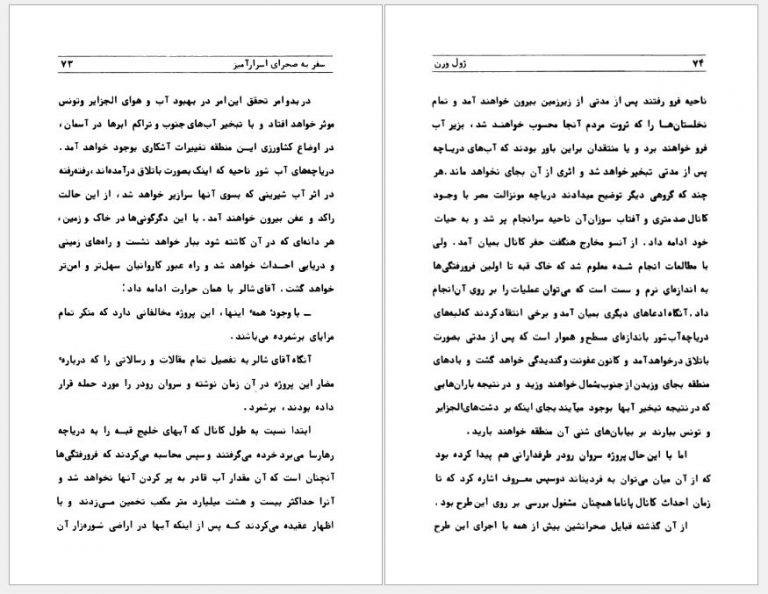 سفر به صحرای اسرارآمیز ۷۳
در بدو امر تحقق این امر در بهبود آب و هوای الجزایر و تونس
موثر خواهد افتاد و با تبخیر آب‌های جنوب و تراکم ابرها در آسمان،
در اوضاع کشاورزی ایـن منطقه تغییرات آشکاری بوجود خواهد آمد.
دریاچه‌های آب شور ناحیه که اینک بصورت باتلاق درآمده‌اند، رفته‌رفته
در اثر آب شیرینی که بسوی آنها سرازیر خواهد شد، از این حالت
راکد و عفن بیرون خواهند آمد. با این دگرگونی‌ها در خاک و زمین،
هر دانه‌ای که در آن کاشته شود ببار خواهد نشست و راه‌های زمینی
و دریایی احـداث خواهد شد و راه عبور کاروانیان سهل‌تر و امن‌تر
خواهد گشت. آقای شالر با همان حرارت ادامه داد:
ــ با وجود همهٔ اینها، این پروژه مخالفانی دارد که منکر تمام
مزایای برشمرده می‌باشند.
آنگاه آقای شالر به تفصیل تمام مقالات و رسالاتی را که دربارهٔ
مضار این پروژه در آن زمان نوشته و سروان رودر را مورد حمله قرار
داده بودند، برشمرد.
ابتدا نسبت به طول کانال که آبهای خلیج قبـه را به دریاچه
رهارسا می‌برد خرده می‌گرفتند و سپس محاسبه می‌کردند که فرورفتگی‌ها
آنچنان است که آن مقدار آب قادر به پر کردن آنها نخواهد شد و
آنرا حداکثر بیست و هشت میلیارد متر مکعب تخمین مـی‌زدند و یا
اظهار عقیده می‌کردند کـه پس از اینکه آبها در اراضی شوره‌زار آن
ژول ورن ۷۴
ناحیه فرو رفتند پس از مدتی از زیرزمین بیرون خواهند آمد و تمام
نخلستان‌هـا را که ثروت مردم آنجا محسوب خواهنـد شد، بزیر آب
فرو خواهند برد و یا منتقدان براین باور بودند که آب‌های دریـاچه
پس از مدتی تبخیر خواهد شد و اثری از آن بجای نخواهد ماند. هر
چند که گروهی دیگر توضیح میدادند دریاچه مونزالت مصر با وجـود
کانال صد متری و آفتاب سوزان آن ناحیه سرانجام پر شد و به حیات
خود ادامه داد. از آنسو مخارج هنگفت حفر کانال بمیان آمد. ولی
با مطالعات انجام شـده معلوم شد که خاک قبه تا اولین فرورفتگی‌ها
به اندازه‌ای نرم و سست است که می‌توان عملیات را بر روی آن انجام
داد. آنگاه ادعاهای دیگری بمیان آمد و برخی انتقاد کردند که لبه‌های
دریاچه آب شور باندازه‌ای مسطح و هموار است که پس از مدتی بصورت
باتلاق درخواهد آمد و کانون عفونت و گندیدگی خواهد گشت و بادهای
منطقه بجای وزیدن از جنوب بشمال خواهند وزید و در نتیجه باران‌هایی
که در نتیجه تبخیر آبها بوجود میآیند بجای اینکه بر دشت‌های الجزایر
و تونس ببارند بر بیابان‌های شنی آن منطقه خواهند بارید.
اما با این حال پروژه سروان رودر طرفدارانی هم پیدا کرده بود
که از آن میان می‌توان به فردیناند دوسپس معـروف اشاره کرد که تا
زمان احداث کانال پاناما همچنان مشغول بررسی بر روی این طرح بود.
از آن گذشته قبایل صحرانشین بیش از همه با اجرای این طرح